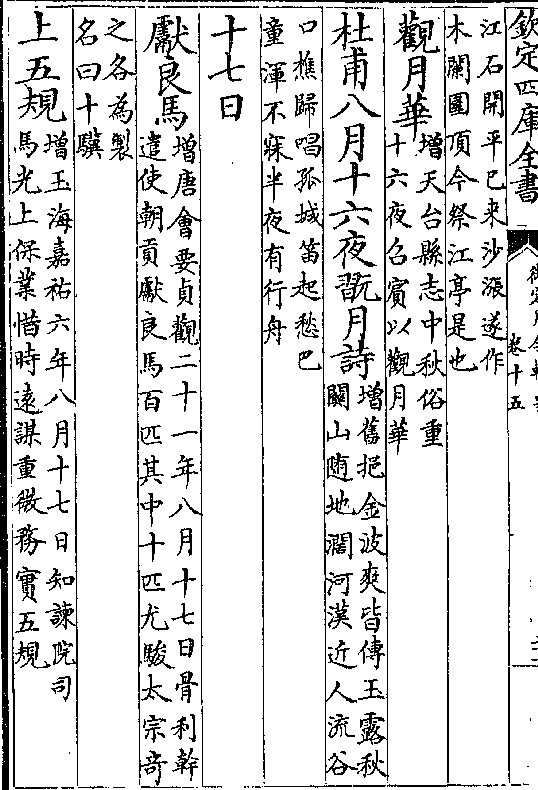 欽定四庫全書
卷十五
江石開平已来沙漲遂作
木蘭圍頂今祭江亭是也
觀月華
增天台縣志中秋俗重
十六夜召賓以觀月華
杜甫八月十六夜翫月詩
增舊挹金波爽皆傳玉露秋
關山隨地濶河漢近人流谷
口樵歸唱孤城笛起愁巴
童渾不寐半夜有行舟
十七日
獻良馬
增唐會要貞觀二十一年八月十七日骨利幹
遣使朝貢獻良馬百匹其中十匹尤駿太宗竒
之各為製
名曰十驥
上五規
增玉海嘉祐六年八月十七日知諫院司
馬光上保業惜時遠謀重微務實五規